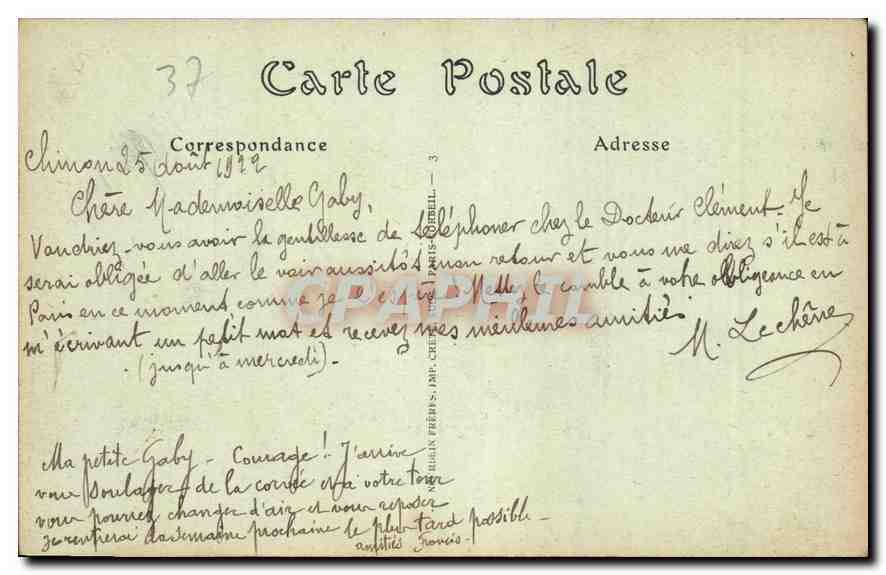 37
Carte Postale
Correspondance
Adresse
Chinon 25 août 1922
Chère Mademoiselle Gaby,
Voudriez-vous avoir la gentillesse de téléphoner chez le Docteur Clément. Je
serai obligée d'aller le voir aussitôt mon retour et vous me direz s'il est à
Paris en ce moment comme je le Mettez le comble à votre obligeance en
m'écrivant un petit mot et recevez mes meilleures amitiés.
(jusqu'à mercredi). M. Lechêne
Ma petite Gaby - Courage! J'arrive
vous soulager de la corvée et à votre tour
vous pourrez changer d'air et vous reposer
je rentrerai la semaine prochaine le plus tard possible -
amitiés Francis -
FRÈRES, IMP. PARIS-CORBEIL. — 3
CPAPHIL